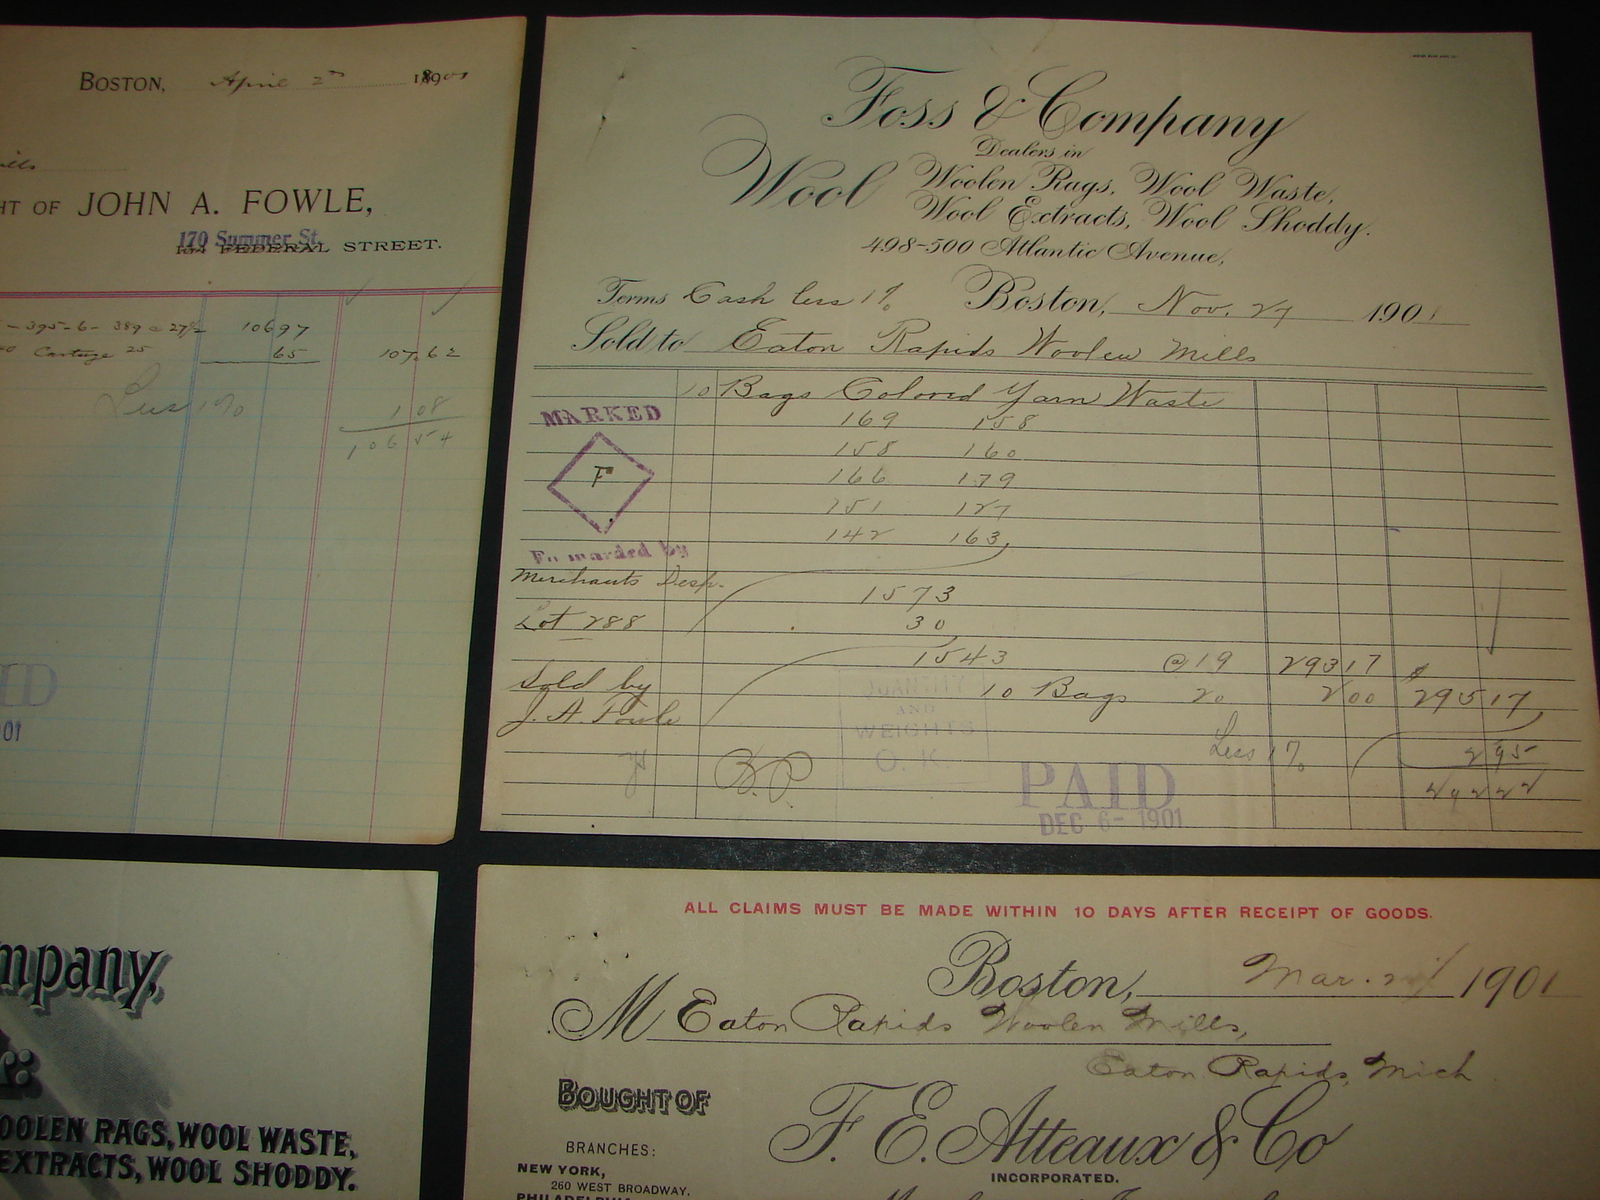 BOSTON, April 2nd 1901
HT OF JOHN A. FOWLE,
170 Summer St.
FEDERAL STREET.
- 395-6- 389 @ 27½ 106 97
Cartage 25 65 107.62
Less 1% 1 08
106 54
01
Foss & Company
Dealers in
Wool
Woolen Rags, Wool Waste,
Wool Extracts, Wool Shoddy.
498-500 Atlantic Avenue,
Terms Cash less 1% Boston, Nov. 27 1901
Sold to Eaton Rapids Woolen Mills
10 Bags Colored Yarn Waste
MARKED
169 158
158 160
F
166 179
151 127
142 163
Forwarded by
Merchants Desp.
1573
Lot 288
30
1543 @ 19 293 17 $
Sold by
10 Bags 20 2 00 295 17
J. A. Fowle
QUANTITY
AND
WEIGHTS
O. K.
Less 1% 2 95
292 22
B.P.
PAID
DEC 6- 1901
mpany,
OOLEN RAGS, WOOL WASTE,
EXTRACTS, WOOL SHODDY.
ALL CLAIMS MUST BE MADE WITHIN 10 DAYS AFTER RECEIPT OF GOODS.
Boston, Mar. 1901
M Eaton Rapids Woolen Mills,
Eaton Rapids, Mich
BOUGHT OF F. E. Atteaux & Co
INCORPORATED.
BRANCHES:
NEW YORK,
260 WEST BROADWAY.
PHILADELPHIA